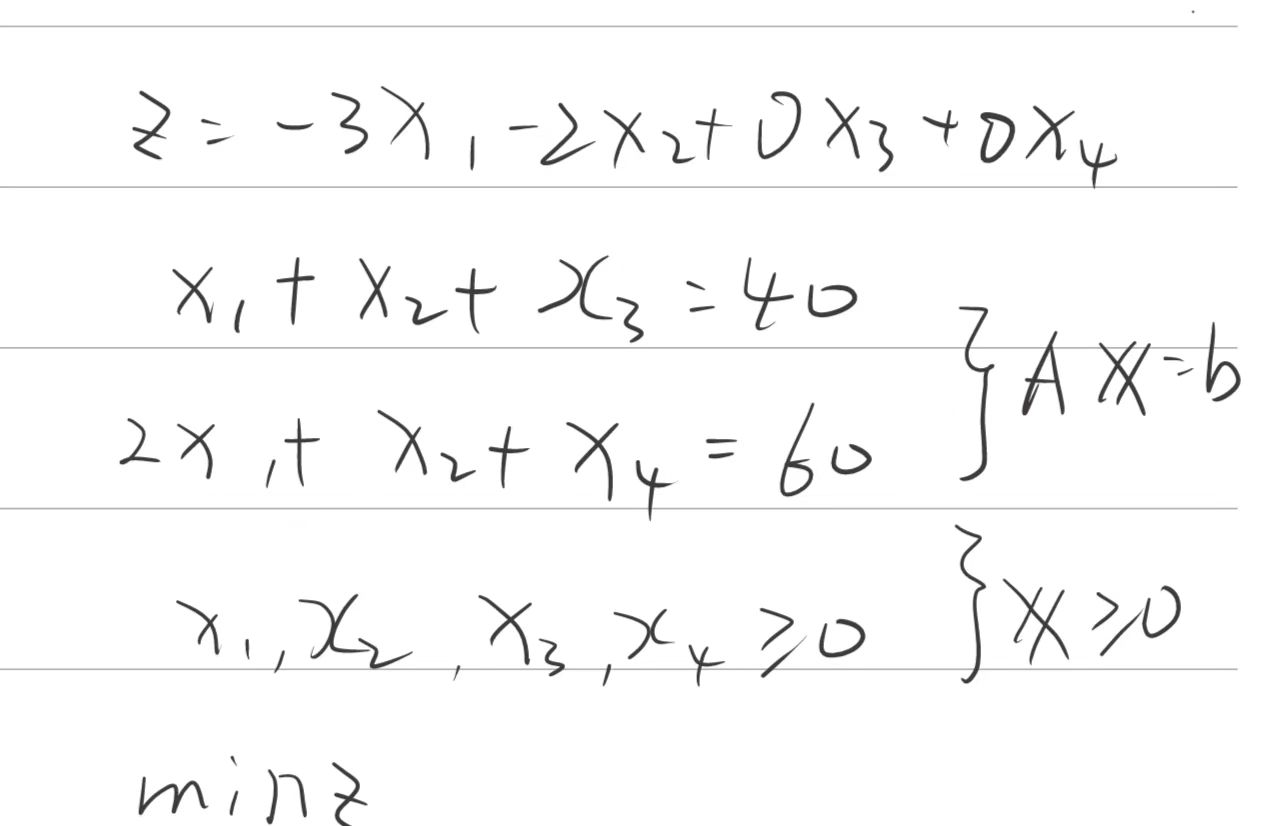 z = -3x₁ - 2x₂ + 0x₃ + 0x₄
x₁ + x₂ + x₃ = 40
} A𝕏 = b
2x₁ + x₂ + x₄ = 60
x₁, x₂, x₃, x₄ ≥ 0 } 𝕏 ≥ 0
min z